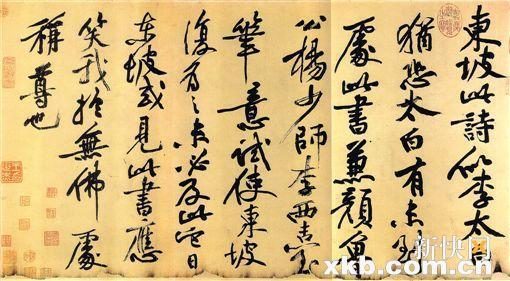 東坡此詩似李太白
猶恐太白有未到
處此書兼顏魯
公楊少師李西臺
筆意試使東坡
復為之未必及此它日
東坡或見此書應
笑我於無佛處
稱尊也
新快网
xkb.com.cn